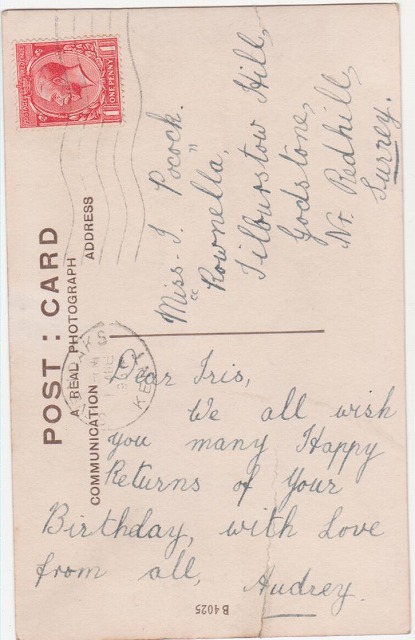 POST : CARD
A REAL PHOTOGRAPH
COMMUNICATION
ADDRESS
ONE PENNY
Miss I. Pocock.
"Rownella,"
Tilburstow Hill,
Godstone,
Nr. Redhill,
Surrey.
Dear Iris,
We all wish
you many Happy
Returns of Your
Birthday, with Love
from all, Audrey.
B 4025
KENT